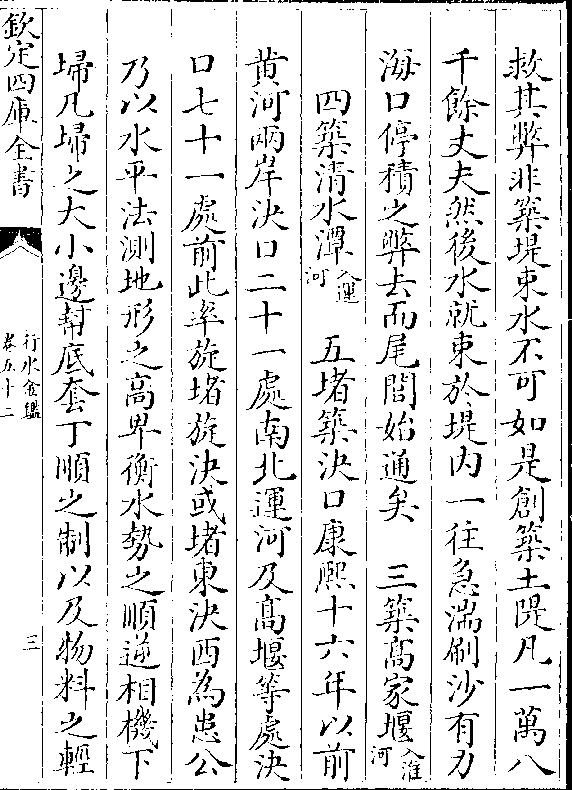 救其弊非築堤束水不可如是創築土隄凡一萬八
千餘丈夫然後水就束於堤内一往急湍刷沙有力
海口停積之弊去而尾閭始通矣　三築高家堰入淮河
四築清水潭入運河　五堵築決口康熙十六年以前
黄河兩岸決口二十一處南北運河及高堰等處決
口七十一處前此率旋堵旋決或堵東決西為患公
乃以水平法測地形之高卑衡水勢之順逆相機下
埽凡埽之大小邊幇底套丁順之制以及物料之輕
欽定四庫全書
行水金鑑
卷五十二
三